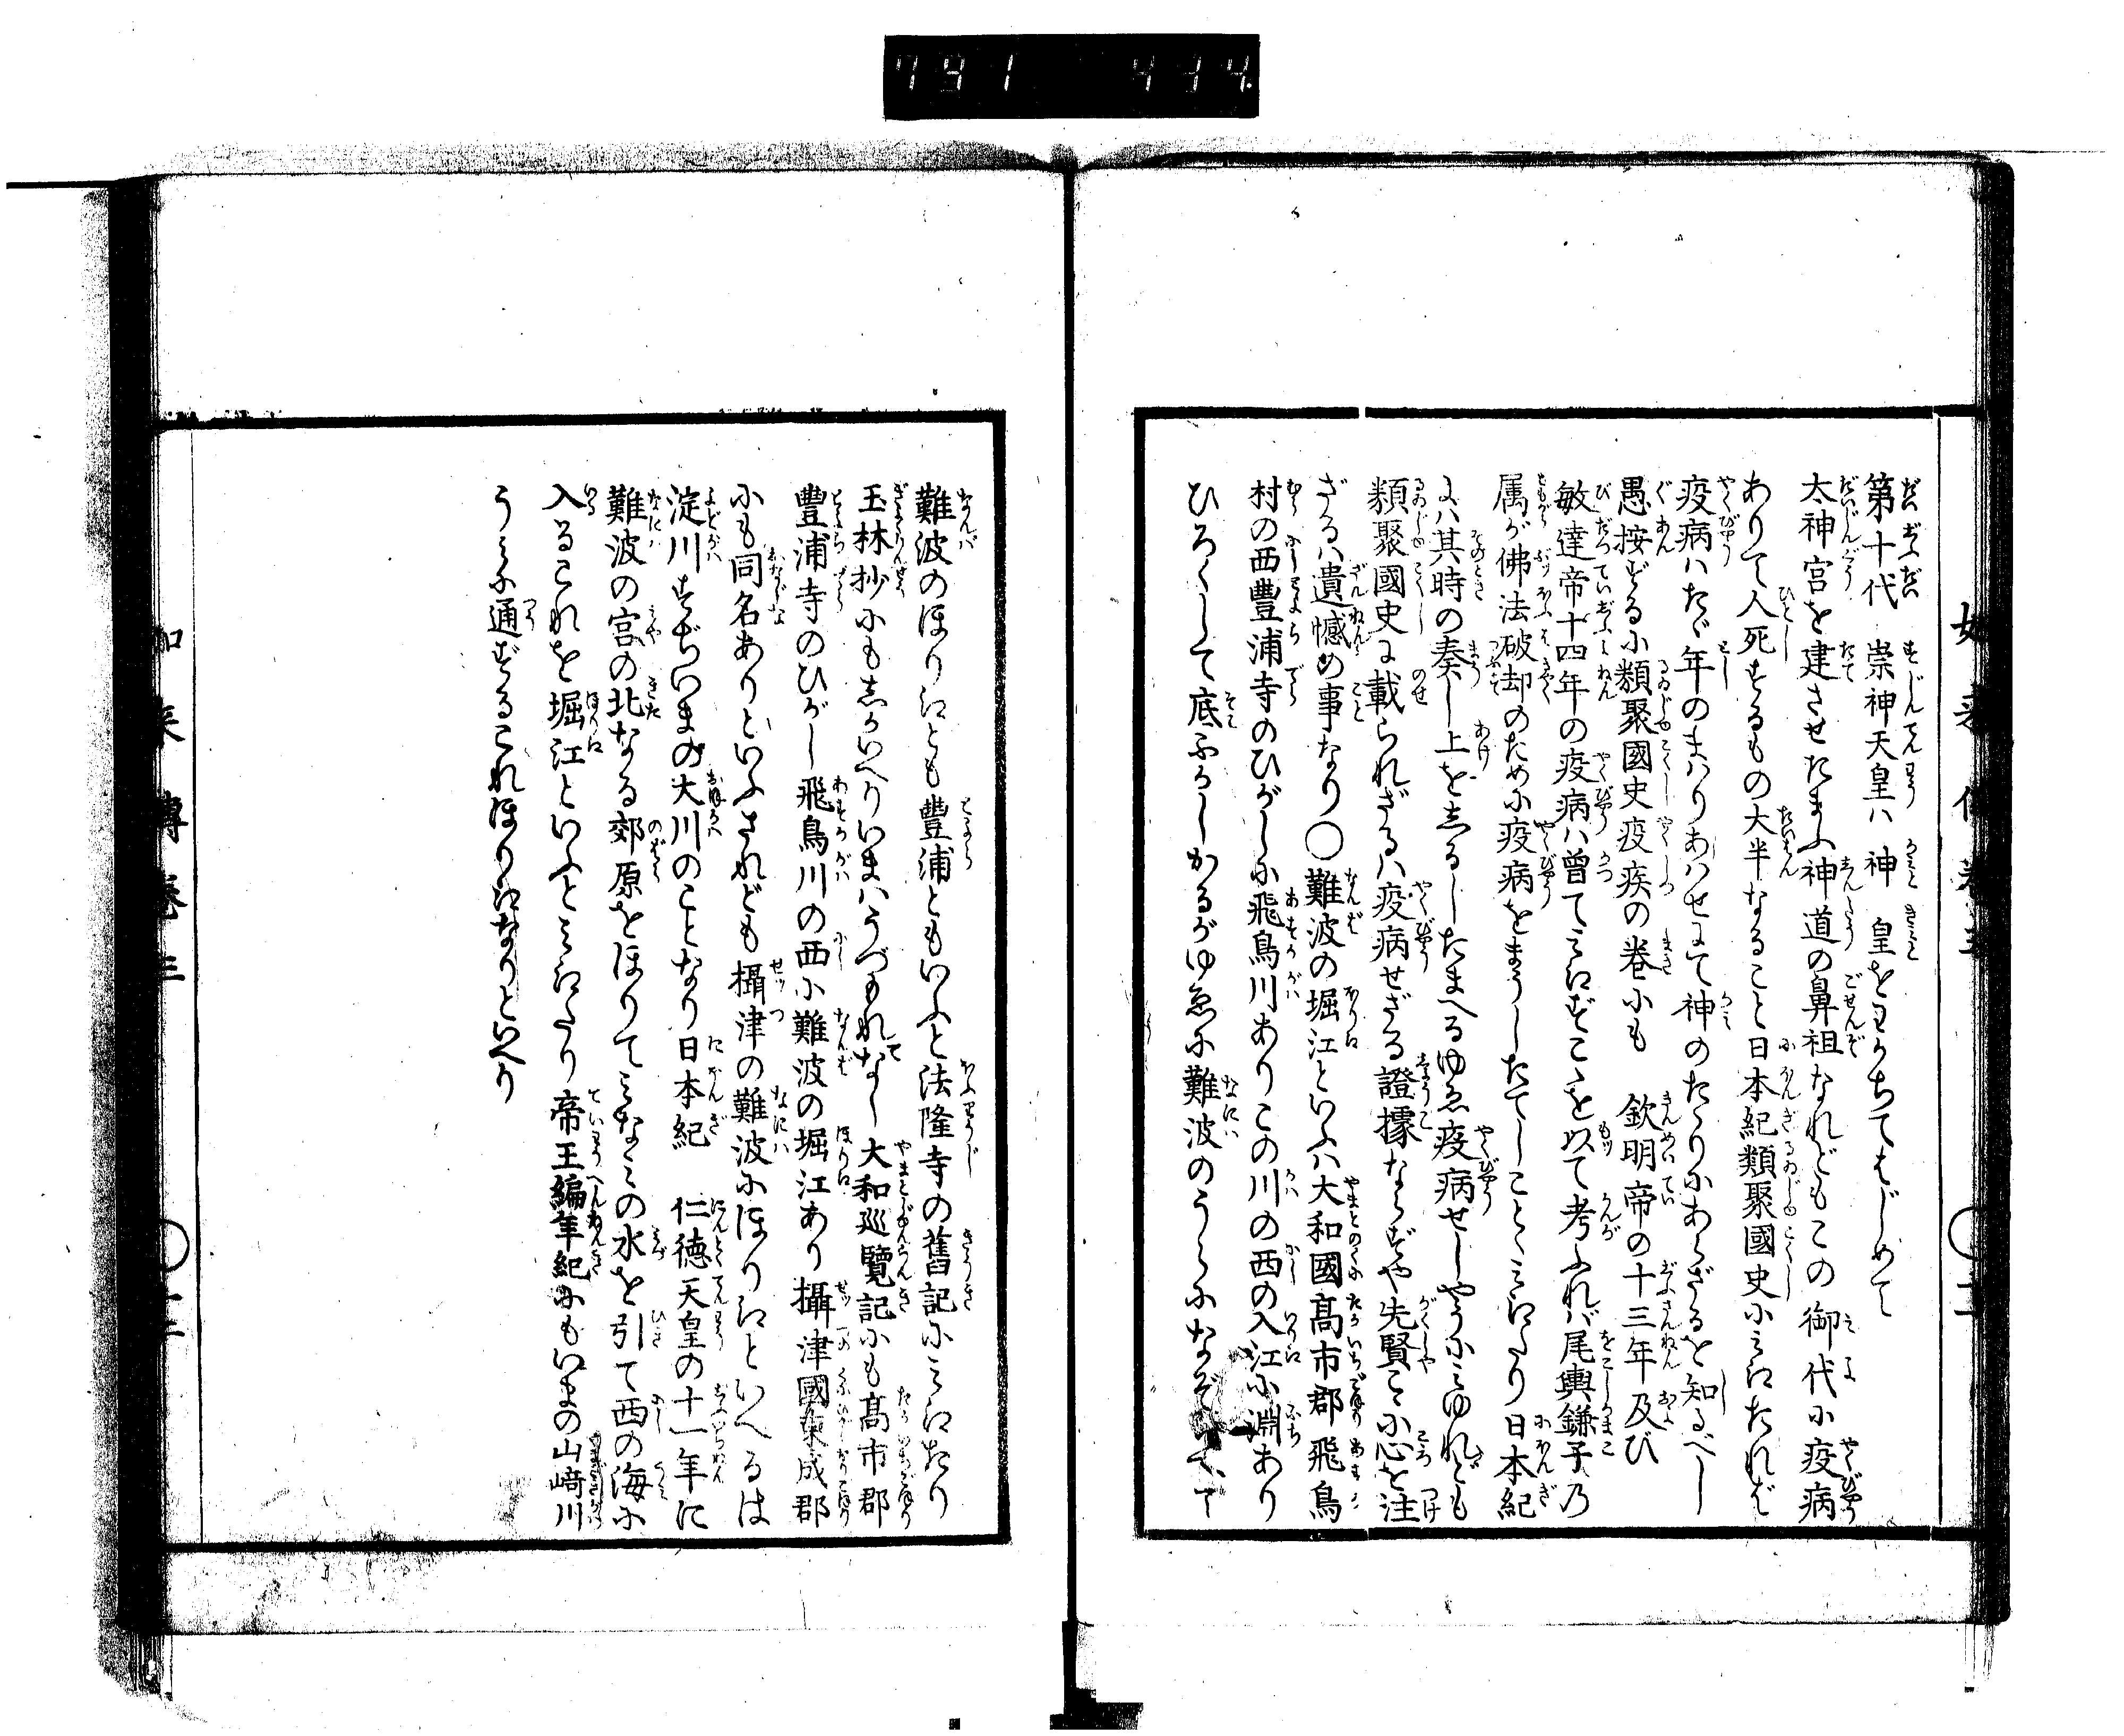 第十代 崇神天皇ハ神 皇をわかちてはじめて
太神宮を建させたまふ神道の鼻祖なれどもこの御代小疫病
ありて人死するもの大半なること日本紀類聚國史小みえたれば
疫病ハたゞ年のまハりあハせにて神のたゝり小あらざるを知るべし
愚按ずる小類聚國史疫疾の巻小も 欽明帝の十三年及び
敏達帝十四年の疫病ハ曾てみえずこゝを以て考ふれバ尾輿鎌子乃
属が佛法破却のため小疫病をまうしたてしことゝみえたり日本紀
にハ其時の奏し上を志るしたまへるゆゑ疫病せしやう小みゆれども
類聚國史に載られざるハ疫病せざる證據ならずや先賢こゝ小心を注
ざるハ遺憾の事なり〇難波の堀江といふハ大和國髙市郡飛鳥
村の西豐浦寺のひがし小飛鳥川ありこの川の西の入江小淵あり
ひろくして底ふかしかるがゆゑに難波のうらになぞらへて
難波のほり江とも豐浦ともいふと法隆寺の舊記にみえたり
玉林抄小も志かいへりいまハうづもれてなし大和巡覽記小も髙市郡
豐浦寺のひがし飛鳥川の西小難波の堀江あり攝津國東成郡
小も同名ありといふされども攝津の難波にほり江といへるは
淀川すぢいまの大川のことなり日本紀 仁德天皇の十一年に
難波の宮の北なる郊原をほりてみなミの水を引て西の海に
入るこれを堀江といふとみえたり帝王編年紀にもいまの山﨑川
うみに通ずるこれほり江なりといへり
如來傳卷三